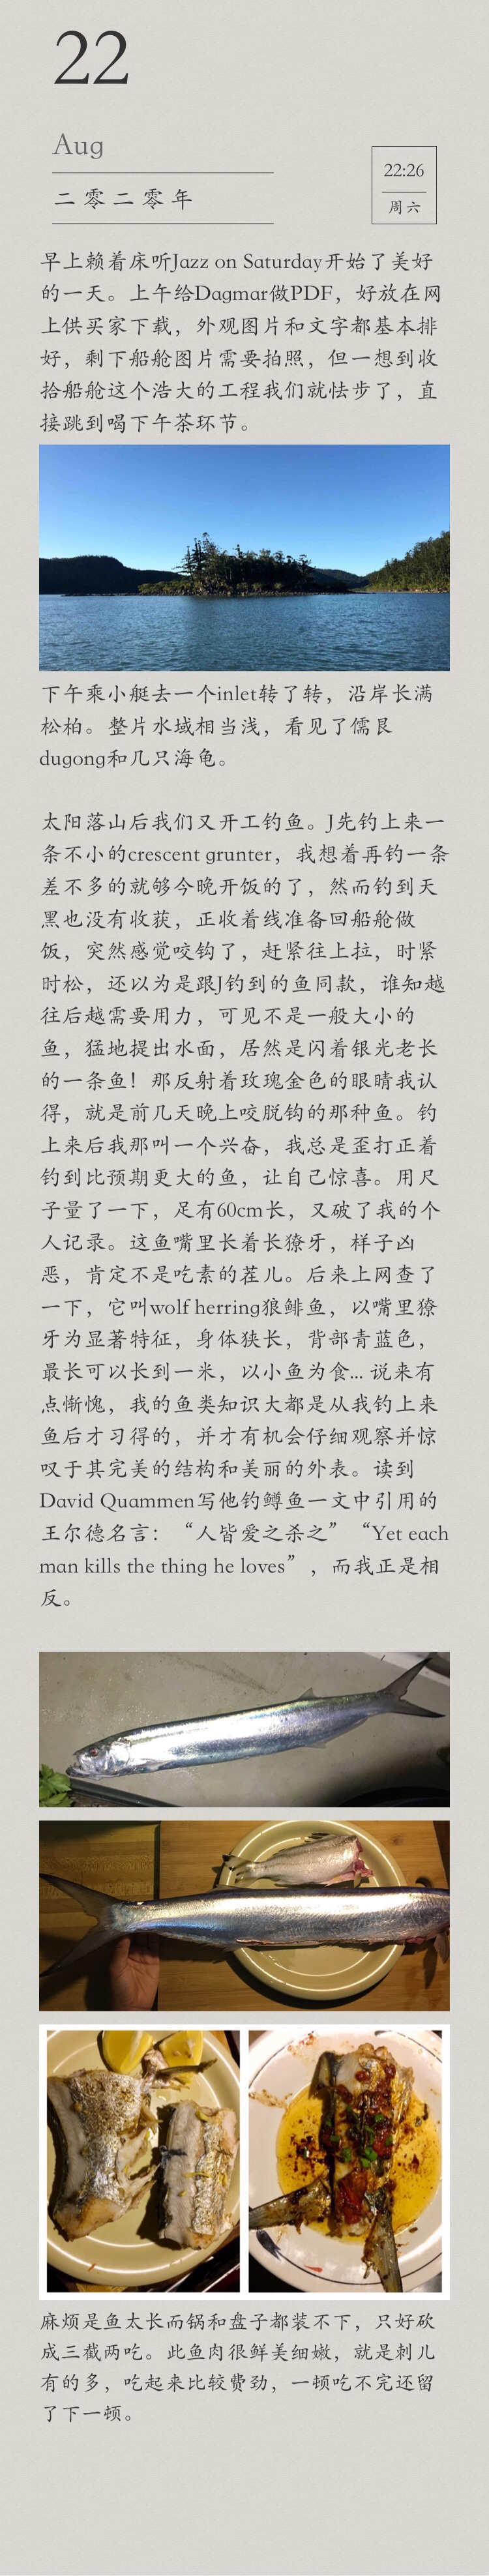 22
Aug
二零二零年
22:26
周六
早上赖着床听Jazz on Saturday开始了美好
的一天。上午给Dagmar做PDF，好放在网
上供买家下载，外观图片和文字都基本排
好，剩下船舱图片需要拍照，但一想到收
拾船舱这个浩大的工程我们就怯步了，直
接跳到喝下午茶环节。
下午乘小艇去一个inlet转了转，沿岸长满
松柏。整片水域相当浅，看见了儒艮
dugong和几只海龟。
太阳落山后我们又开工钓鱼。J先钓上来一
条不小的crescent grunter，我想着再钓一条
差不多的就够今晚开饭的了，然而钓到天
黑也没有收获，正收着线准备回船舱做
饭，突然感觉咬钩了，赶紧往上拉，时紧
时松，还以为是跟J钓到的鱼同款，谁知越
往后越需要用力，可见不是一般大小的
鱼，猛地提出水面，居然是闪着银光老长
的一条鱼！那反射着玫瑰金色的眼睛我认
得，就是前几天晚上咬脱钩的那种鱼。钓
上来后我那叫一个兴奋，我总是歪打正着
钓到比预期更大的鱼，让自己惊喜。用尺
子量了一下，足有60cm长，又破了我的个
人记录。这鱼嘴里长着长獠牙，样子凶
恶，肯定不是吃素的茬儿。后来上网查了
一下，它叫wolf herring狼鲱鱼，以嘴里獠
牙为显著特征，身体狭长，背部青蓝色，
最长可以长到一米，以小鱼为食... 说来有
点惭愧，我的鱼类知识大都是从我钓上来
鱼后才习得的，并才有机会仔细观察并惊
叹于其完美的结构和美丽的外表。读到
David Quammen写他钓鳟鱼一文中引用的
王尔德名言：“人皆爱之杀之”“Yet each
man kills the thing he loves”，而我正是相
反。
麻烦是鱼太长而锅和盘子都装不下，只好砍
成三截两吃。此鱼肉很鲜美细嫩，就是刺儿
有的多，吃起来比较费劲，一顿吃不完还留
了下一顿。